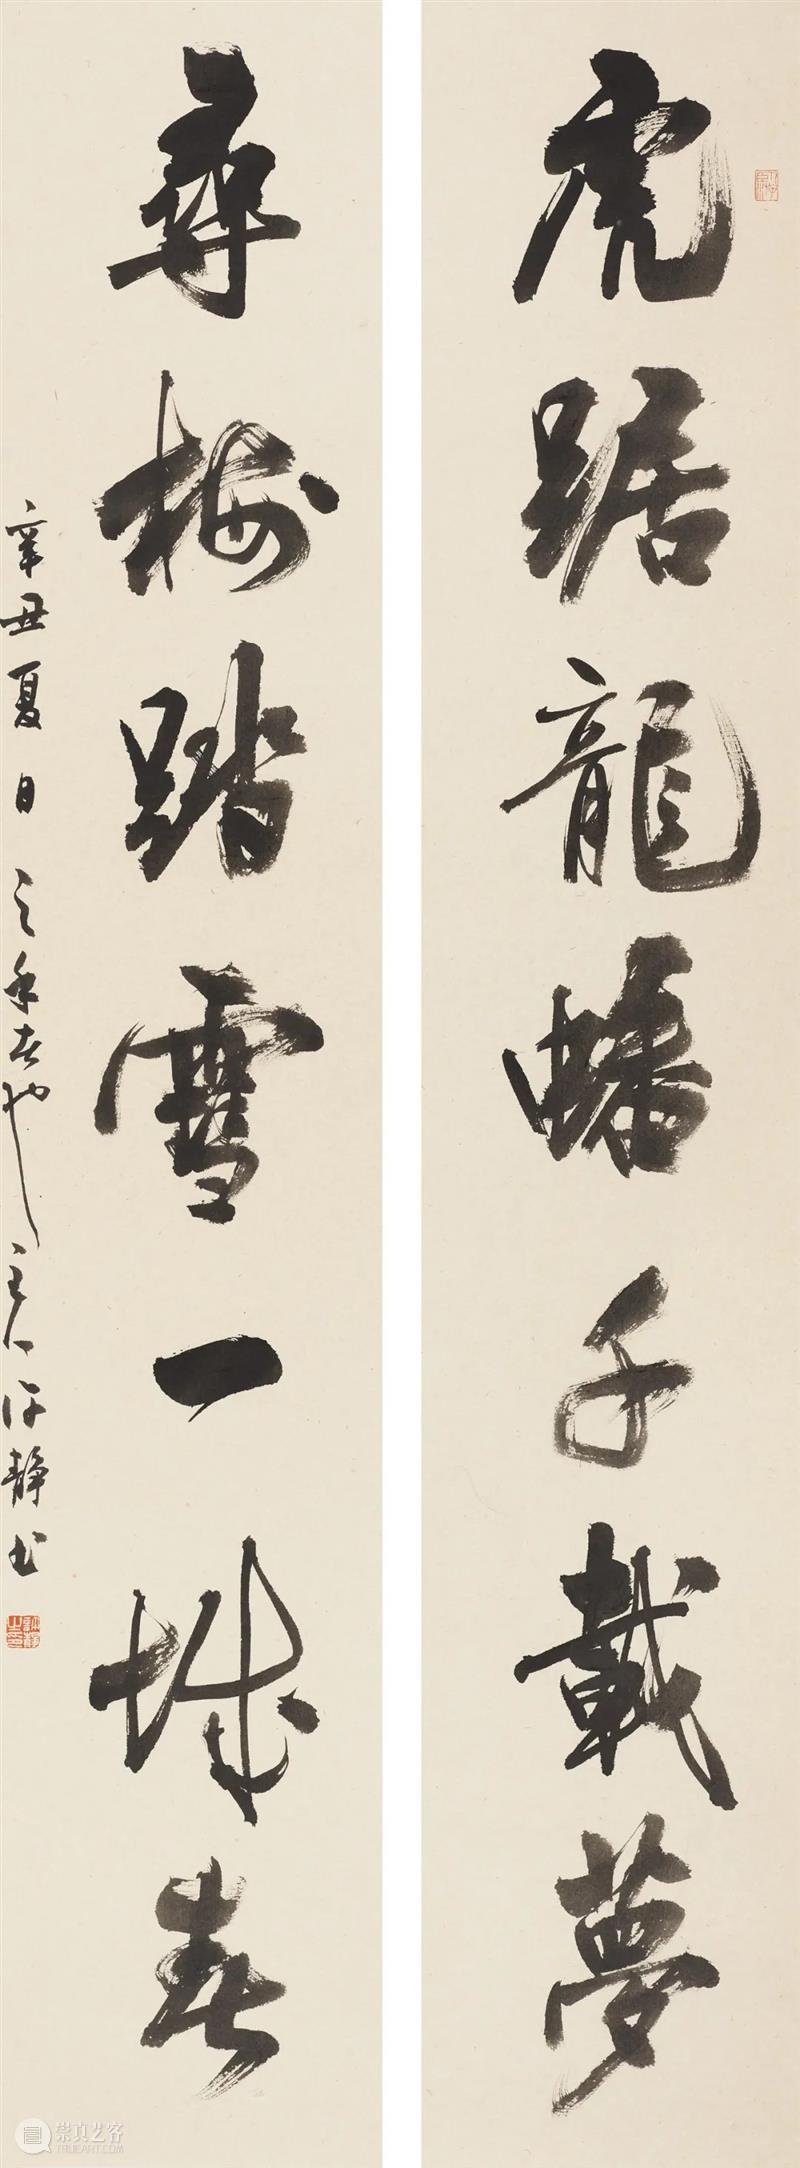 虎踞龍蟠千載夢
尋梅踏雪一城春
辛丑夏日
許靜書
崇真艺客
TRUEART.COM